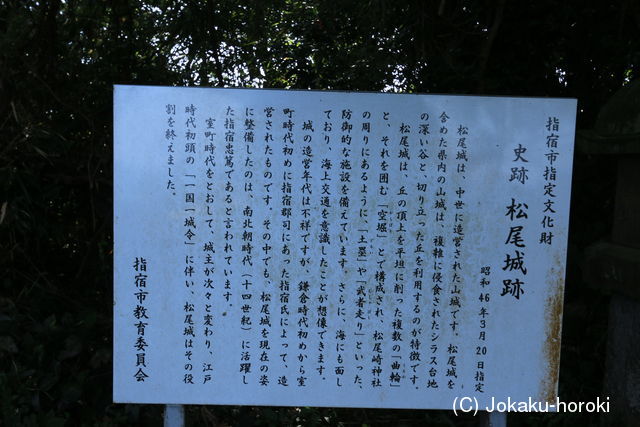 指宿市指定文化財
史跡 松尾城跡
昭和46年3月20日指定
松尾城は、中世に造営された山城です。松尾城を
含めた県内の山城は、複雑に侵食されたシラス台地
の深い谷と、切り立った丘を利用するのが特徴です。
松尾城は、丘の頂上を平坦に削った複数の「曲輪」
と、それを囲む「空堀」とで構成され、松尾崎神社
の周りにあるように「土塁」や「武者走り」といった、
防御的な施設を備えています。さらに、海にも面し
ており、海上交通を意識したことが想像できます。
城の造営年代は不祥ですが、鎌倉時代初めから室
町時代初めに指宿郡司にあった指宿氏によって、造
営されたものです。その中でも、松尾城を現在の姿
に整備したのは、南北朝時代(十四世紀)に活躍し
た指宿忠篤であると言われています。
室町時代をとおして、城主が次々と変わり、江戸
時代初頭の「一国一城令」に伴い、松尾城はその役
割を終えました。
指宿市教育委員会
(C) Jokaku-horoki